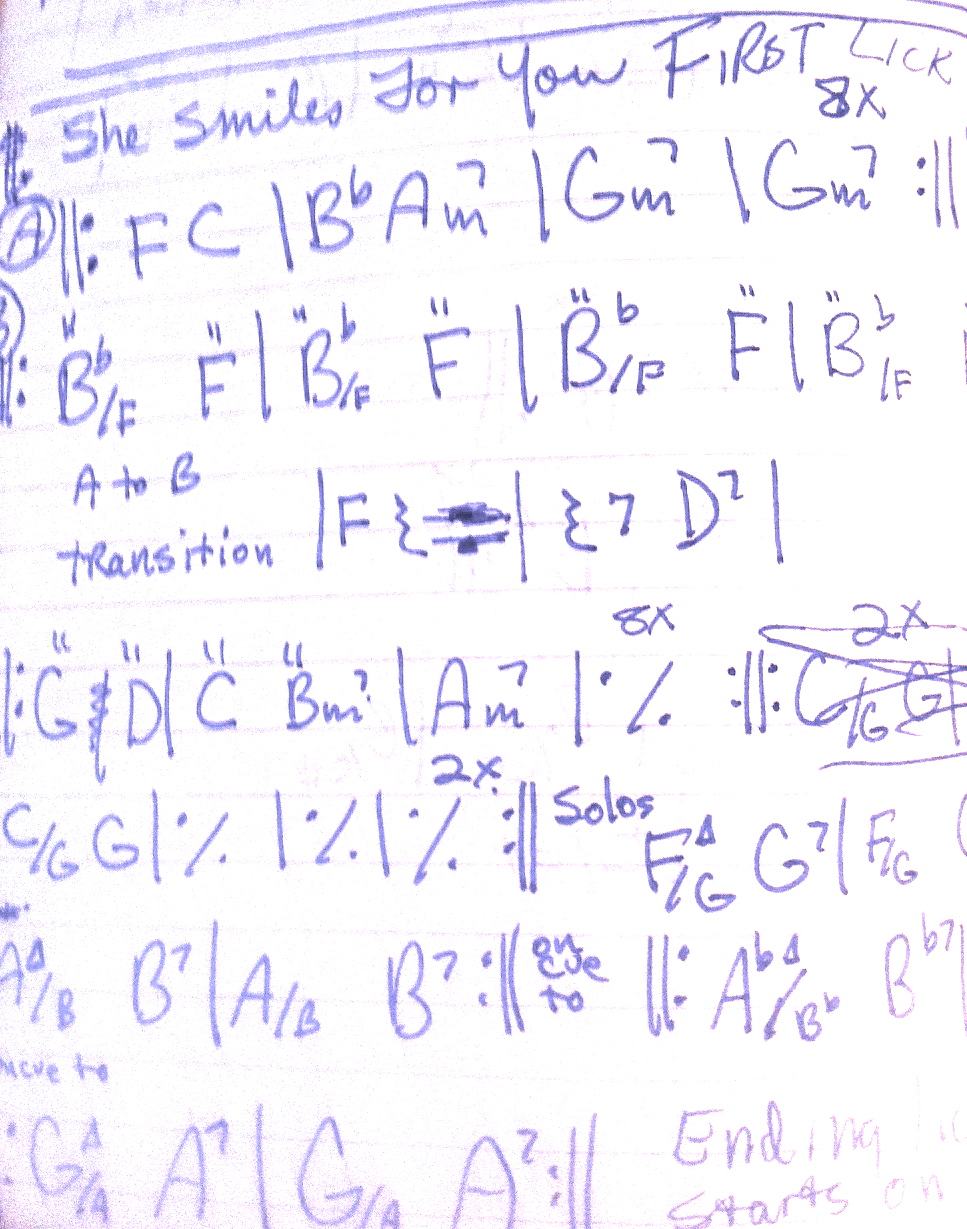 She Smiles For You FIRST LICK
8x
A ||: F C | Bb Am7 | Gm7 | Gm7 :||
||: Bb/F F | Bb/F F | Bb/F F | Bb/F
A to B
transition | F | 7 D7 |
8x 2x
|: G D | C Bm7 | Am7 | ٪ :||: C/G G |
2x
C/G G | ٪ | ٪ | ٪ :|| Solos FΔ/G G7 | F/G
AΔ/B B7 | A/B B7 :|| on cue to ||: AbΔ/Bb Bb7
move to
: GΔ/A A7 | G/A A7 :|| Ending
starts on